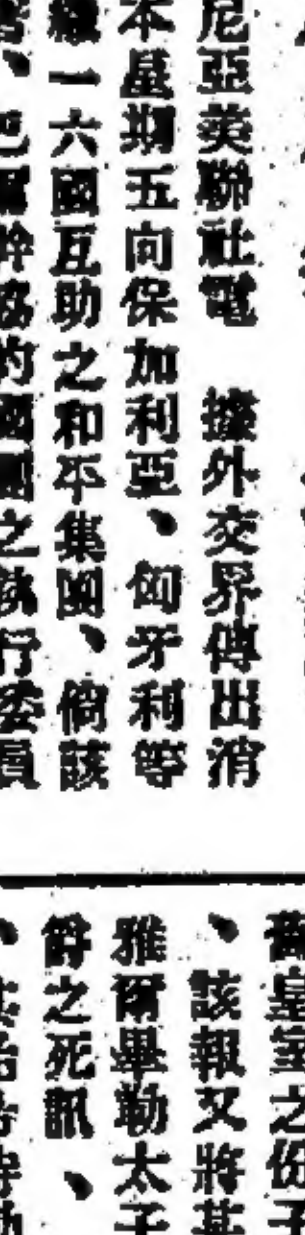 尼亞美聯社電　據外交界傳出消
本星期五向保加利亞、匈牙利等
一六國互助之和平集團、倘該
協約國團之執行委員
皇室之份子
、該報又將其
雅爾畢勒太子
爵之死訊、